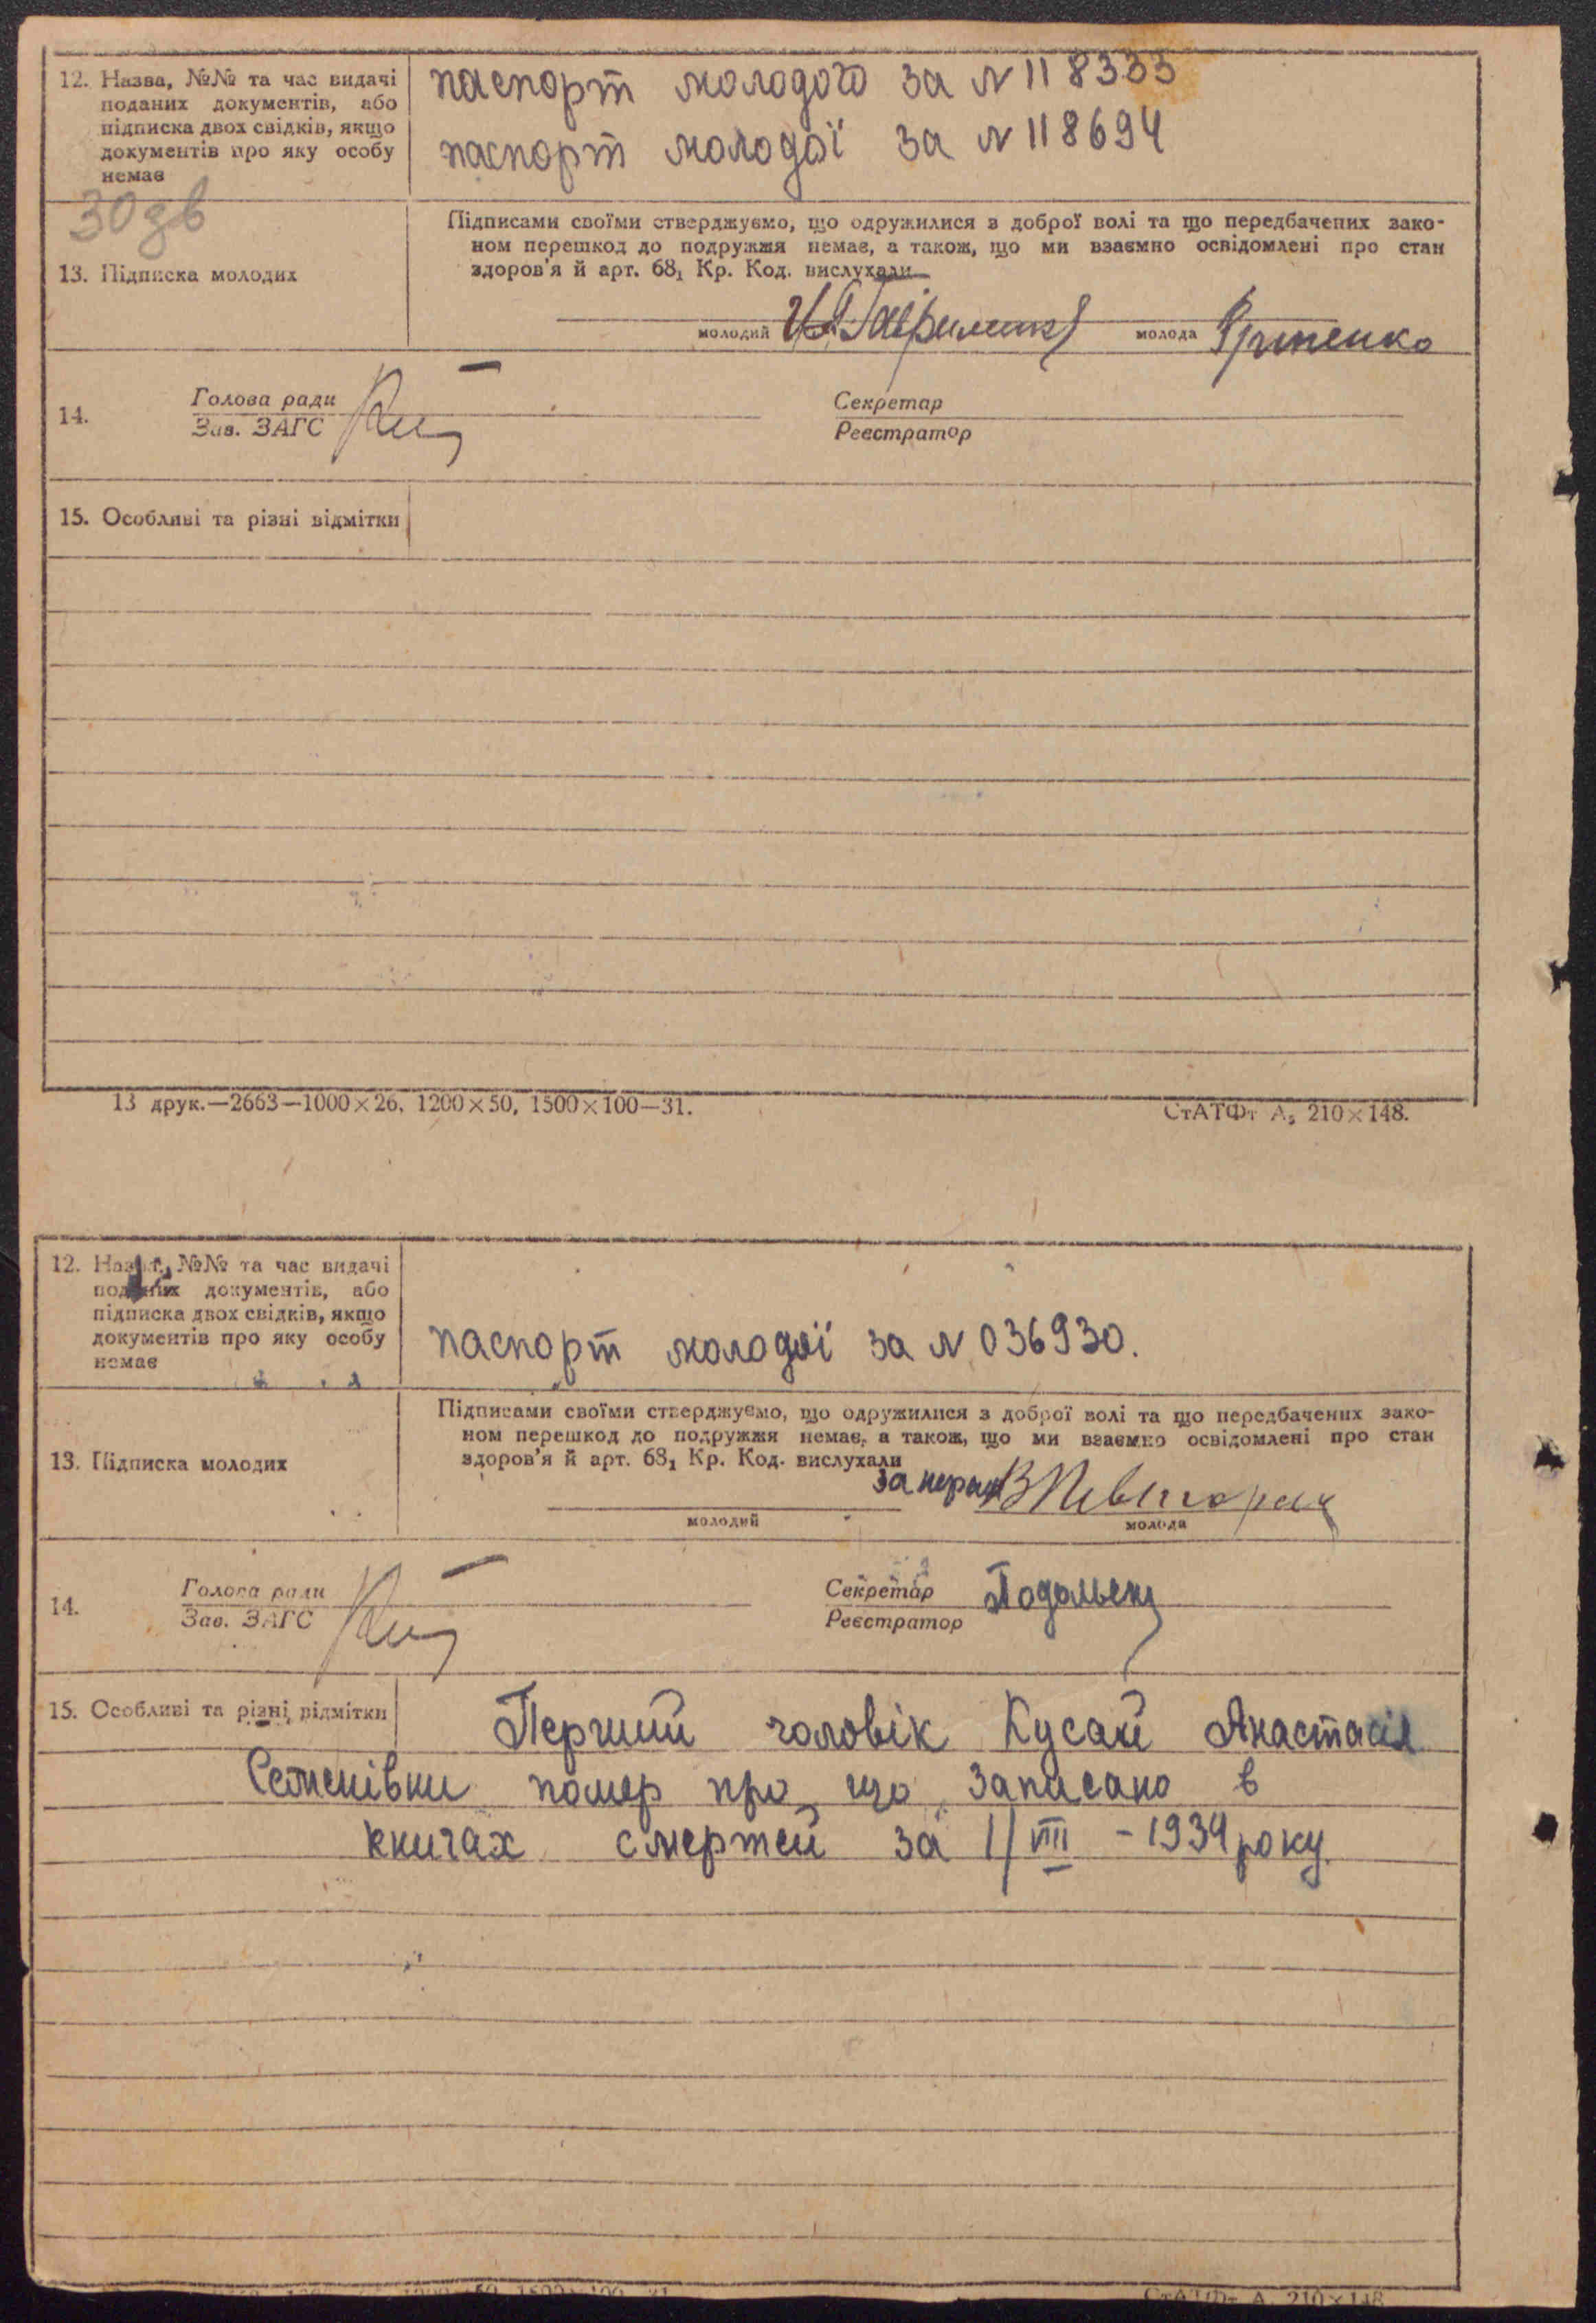 12. Назва, №№ та час видачі
поданих документів, або
підписка двох свідків, якщо
документів про яку особу
немає
паспорт молодого за N 118333
паспорт молодої за N 118694
30 дв
13. Підписка молодих
Підписами своїми стверджуємо, що одружилися з доброї волі та що передбачених зако-
ном перешкод до подружжя немає, а також, що ми взаємно освідомлені про стан
здоров'я й арт. 68₁ Кр. Код. вислухали
молодий молода
14. Голова ради
Зав. ЗАГС
Секретар
Реєстратор
15. Особливі та різні відмітки
13 друк.—2663—1000×26, 1200×50, 1500×100—31.
СтАТФт А₅ 210×148.
12. Назва, №№ та час видачі
поданих документів, або
підписка двох свідків, якщо
документів про яку особу
немає
паспорт молодої за N 036930.
13. Підписка молодих
Підписами своїми стверджуємо, що одружилися з доброї волі та що передбачених зако-
ном перешкод до подружжя немає, а також, що ми взаємно освідомлені про стан
здоров'я й арт. 68₁ Кр. Код. вислухали
за
молодий молода
14. Голова ради
Зав. ЗАГС
Секретар
Реєстратор
15. Особливі та різні відмітки
Перший чоловік Кусай Анастасія
Семенівни помер про що записано в
книгах смертей за 1/VIII - 1934 року.
СтАТФт А 210×148